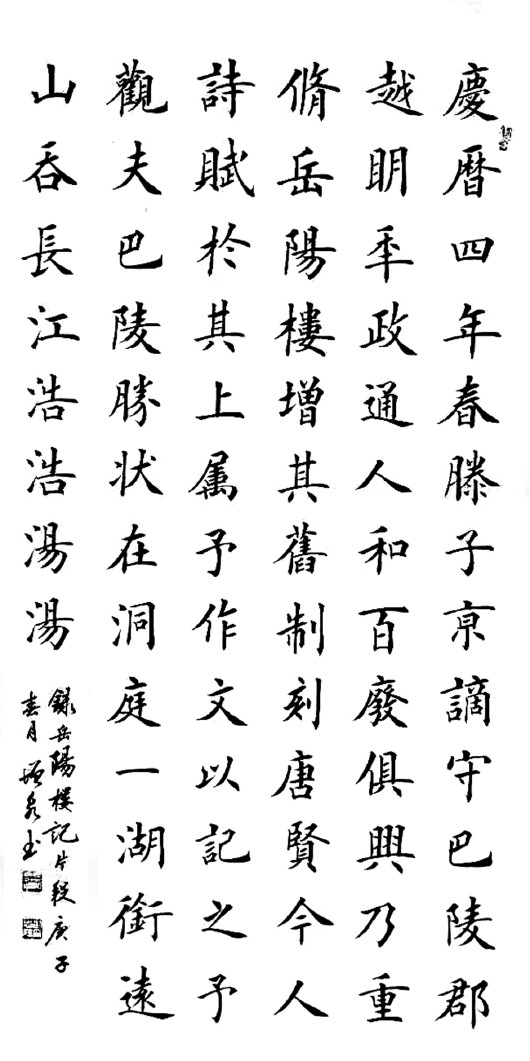 慶暦四年春滕子亰謫守巴陵郡
越眀秊政通人和百廢俱興乃重
脩岳陽樓增其舊制刻唐賢今人
詩賦於其上属予作文以記之予
觀夫巴陵勝状在洞庭一湖銜遠
山吞長江浩浩湯湯
録岳陽樓記片段庚子
春月书